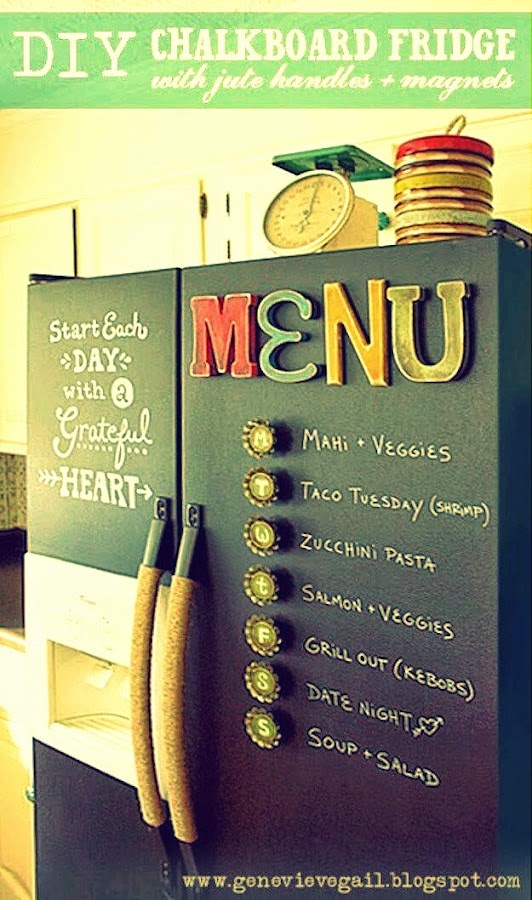 DIY CHALKBOARD FRIDGE
with jute handles + magnets
Start Each
DAY
with a
Grateful
HEART
MENU
M MAHI + VEGGIES
T TACO TUESDAY (SHRIMP)
W ZUCCHINI PASTA
t SALMON + VEGGIES
F GRILL OUT (KEBOBS)
S DATE NIGHT
S SOUP + SALAD
www.genevievegail.blogspot.com